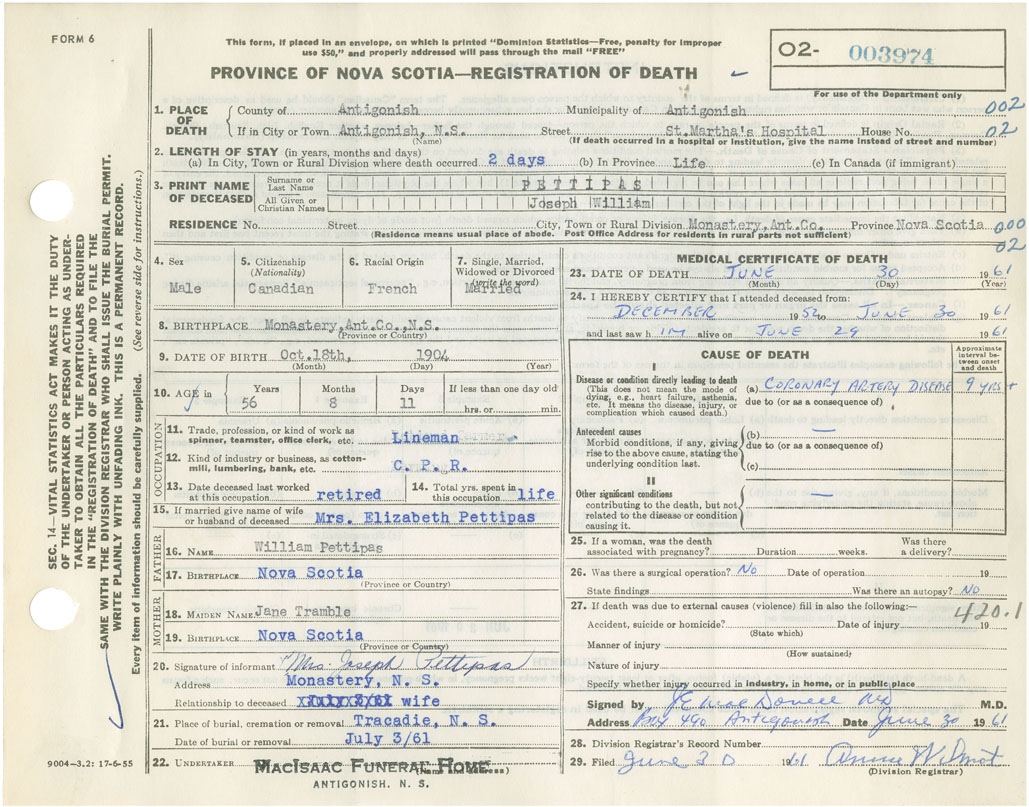 FORM 6
This form, if placed in an envelope, on which is printed "Dominion Statistics—Free, penalty for improper
use $50," and properly addressed will pass through the mail "FREE"
PROVINCE OF NOVA SCOTIA—REGISTRATION OF DEATH
02- 003974
For use of the Department only
1. PLACE OF DEATH
County of Antigonish Municipality of Antigonish 002
If in City or Town Antigonish, N.S. Street St.Martha's Hospital House No. 02
(Name) (If death occurred in a hospital or institution, give the name instead of street and number)
2. LENGTH OF STAY (in years, months and days)
(a) In City, Town or Rural Division where death occurred 2 days (b) In Province Life (c) In Canada (if immigrant)
3. PRINT NAME OF DECEASED
Surname or Last Name PETTIPAS
All Given or Christian Names Joseph William
RESIDENCE No. Street City, Town or Rural Division Monastery,Ant.Co. Province Nova Scotia 000
(Residence means usual place of abode. Post Office Address for residents in rural parts not sufficient) 02
4. Sex 5. Citizenship (Nationality) 6. Racial Origin 7. Single, Married, Widowed or Divorced (write the word)
Male Canadian French Married
8. BIRTHPLACE Monastery,Ant.Co.,N.S.
(Province or Country)
9. DATE OF BIRTH Oct.18th, 1904
(Month) (Day) (Year)
10. AGE Years Months Days If less than one day old
56 8 11 hrs. or min.
OCCUPATION
11. Trade, profession, or kind of work as spinner, teamster, office clerk, etc. Lineman
12. Kind of industry or business, as cotton-mill, lumbering, bank, etc. C. P. R.
13. Date deceased last worked at this occupation retired 14. Total yrs. spent in this occupation life
15. If married give name of wife or husband of deceased Mrs. Elizabeth Pettipas
FATHER
16. NAME William Pettipas
17. BIRTHPLACE Nova Scotia
(Province or Country)
MOTHER
18. MAIDEN NAME Jane Tramble
19. BIRTHPLACE Nova Scotia
(Province or Country)
20. Signature of informant "Mrs. Joseph Pettipas
Address Monastery, N. S.
Relationship to deceased wife
21. Place of burial, cremation or removal Tracadie, N. S.
Date of burial or removal July 3/61
22. UNDERTAKER MACISAAC FUNERAL HOME
(Name and address)
ANTIGONISH, N. S.
9004—3.2: 17-6-55
MEDICAL CERTIFICATE OF DEATH
23. DATE OF DEATH JUNE 30 1961
(Month) (Day) (Year)
24. I HEREBY CERTIFY that I attended deceased from:
DECEMBER 1952 to JUNE 30 1961
and last saw him alive on JUNE 29 1961
CAUSE OF DEATH
Approximate interval between onset and death
I
Disease or condition directly leading to death
(This does not mean the mode of dying, e.g., heart failure, asthenia, etc. It means the disease, injury, or complication which caused death.)
(a) CORONARY ARTERY DISEASE 9 yrs +
due to (or as a consequence of)
Antecedent causes
Morbid conditions, if any, giving rise to the above cause, stating the underlying condition last.
(b) —
due to (or as a consequence of)
(c)
II
Other significant conditions
contributing to the death, but not related to the disease or condition causing it.
—
25. If a woman, was the death associated with pregnancy? Duration weeks. Was there a delivery?
26. Was there a surgical operation? No Date of operation 19
State findings Was there an autopsy? No
27. If death was due to external causes (violence) fill in also the following:— 420.1
Accident, suicide or homicide? Date of injury 19
(State which)
Manner of injury
(How sustained)
Nature of injury
Specify whether injury occurred in industry, in home, or in public place
Signed by M.D.
Address Box 490 Antigonish Date June 30 1961
28. Division Registrar's Record Number
29. Filed June 30 1961 Annie Wilmot
(Division Registrar)
SEC. 14—VITAL STATISTICS ACT MAKES IT THE DUTY
OF THE UNDERTAKER OR PERSON ACTING AS UNDER-
TAKER TO OBTAIN ALL THE PARTICULARS REQUIRED
IN THE "REGISTRATION OF DEATH" AND TO FILE THE
SAME WITH THE DIVISION REGISTRAR WHO SHALL ISSUE THE BURIAL PERMIT.
WRITE PLAINLY WITH UNFADING INK. THIS IS A PERMANENT RECORD.
Every item of information should be carefully supplied. (See reverse side for instructions.)